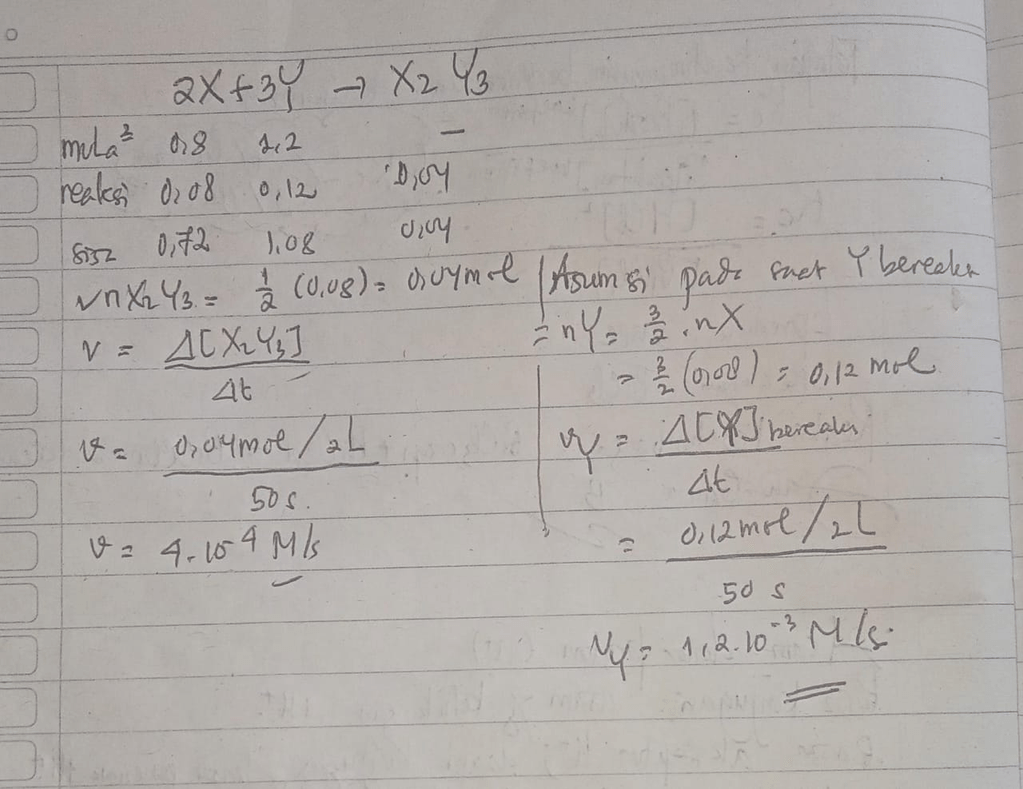 2X + 3Y → X2 Y3
mula² 0,8 1,2 −
reaksi 0,08 0,12 0,04
sisa 0,72 1,08 0,04
√ n X2 Y3 = 1/2 (0,08) = 0,04 mol
v = Δ[X2Y3] / Δt
v = 0,04 mol / 2L / 50 s.
v = 4.10-4 M/s
Asumsi pada saat Y bereaksi
= nY = 3/2 . nX
= 3/2 (0,08) = 0,12 mol
vy = Δ[Y] bereaksi / Δt
= 0,12 mol / 2L / 50 s
Vy = 1,2.10-3 M/s.